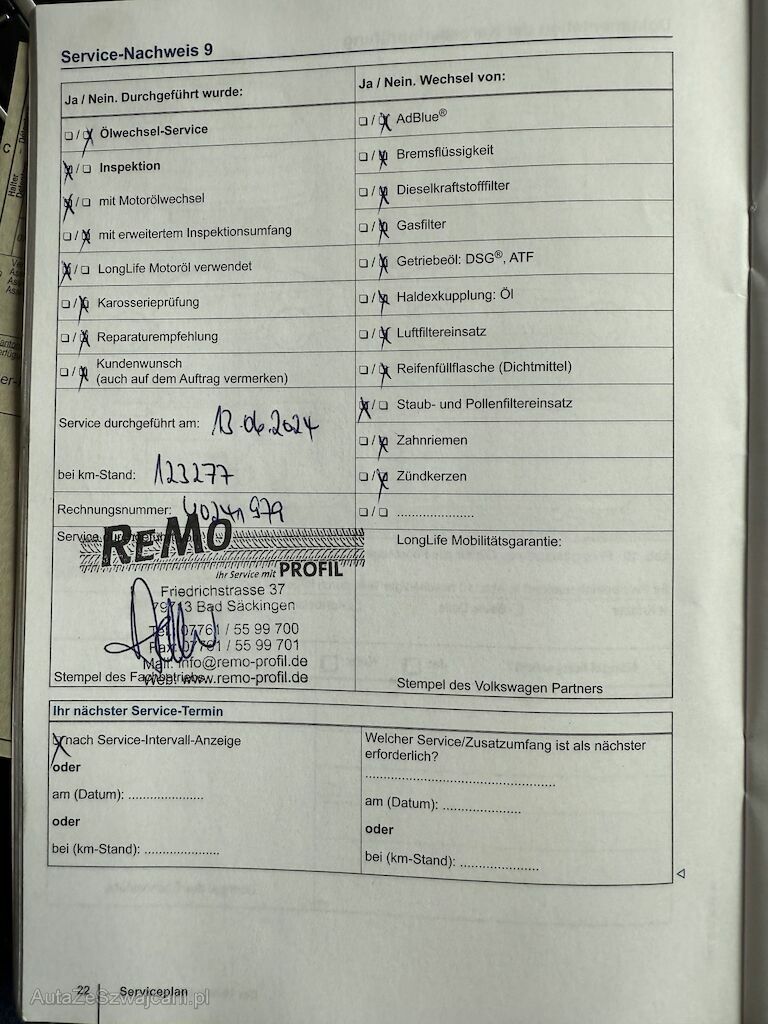 Service-Nachweis 9
Ja / Nein. Durchgeführt wurde:
❏ / ☒ Ölwechsel-Service
☒ / ❏ Inspektion
☒ / ❏ mit Motorölwechsel
❏ / ☒ mit erweitertem Inspektionsumfang
☒ / ❏ LongLife Motoröl verwendet
❏ / ☒ Karosserieprüfung
❏ / ☒ Reparaturempfehlung
❏ / ☒ Kundenwunsch
(auch auf dem Auftrag vermerken)
Service durchgeführt am: 13.06.2024
bei km-Stand: 123277
Rechnungsnummer:
Service durchgeführt
REMO
Ihr Service mit PROFIL
Friedrichstrasse 37
79713 Bad Säckingen
Tel. 07761 / 55 99 700
Fax: 07761 / 55 99 701
Mail: info@remo-profil.de
Web: www.remo-profil.de
Stempel des Fachbetriebs
Ja / Nein. Wechsel von:
❏ / ☒ AdBlue®
❏ / ☒ Bremsflüssigkeit
❏ / ☒ Dieselkraftstofffilter
❏ / ☒ Gasfilter
❏ / ☒ Getriebeöl: DSG®, ATF
❏ / ☒ Haldexkupplung: Öl
❏ / ☒ Luftfiltereinsatz
❏ / ☒ Reifenfüllflasche (Dichtmittel)
☒ / ❏ Staub- und Pollenfiltereinsatz
❏ / ☒ Zahnriemen
❏ / ☒ Zündkerzen
❏ / ❏ ......................
LongLife Mobilitätsgarantie:
Stempel des Volkswagen Partners
Ihr nächster Service-Termin
☒ nach Service-Intervall-Anzeige
oder
am (Datum): ......................
oder
bei (km-Stand): ......................
Welcher Service/Zusatzumfang ist als nächster
erforderlich?
......................................................
am (Datum): ......................
oder
bei (km-Stand): ......................
22 Serviceplan
AutaZeSzwajcarii.pl